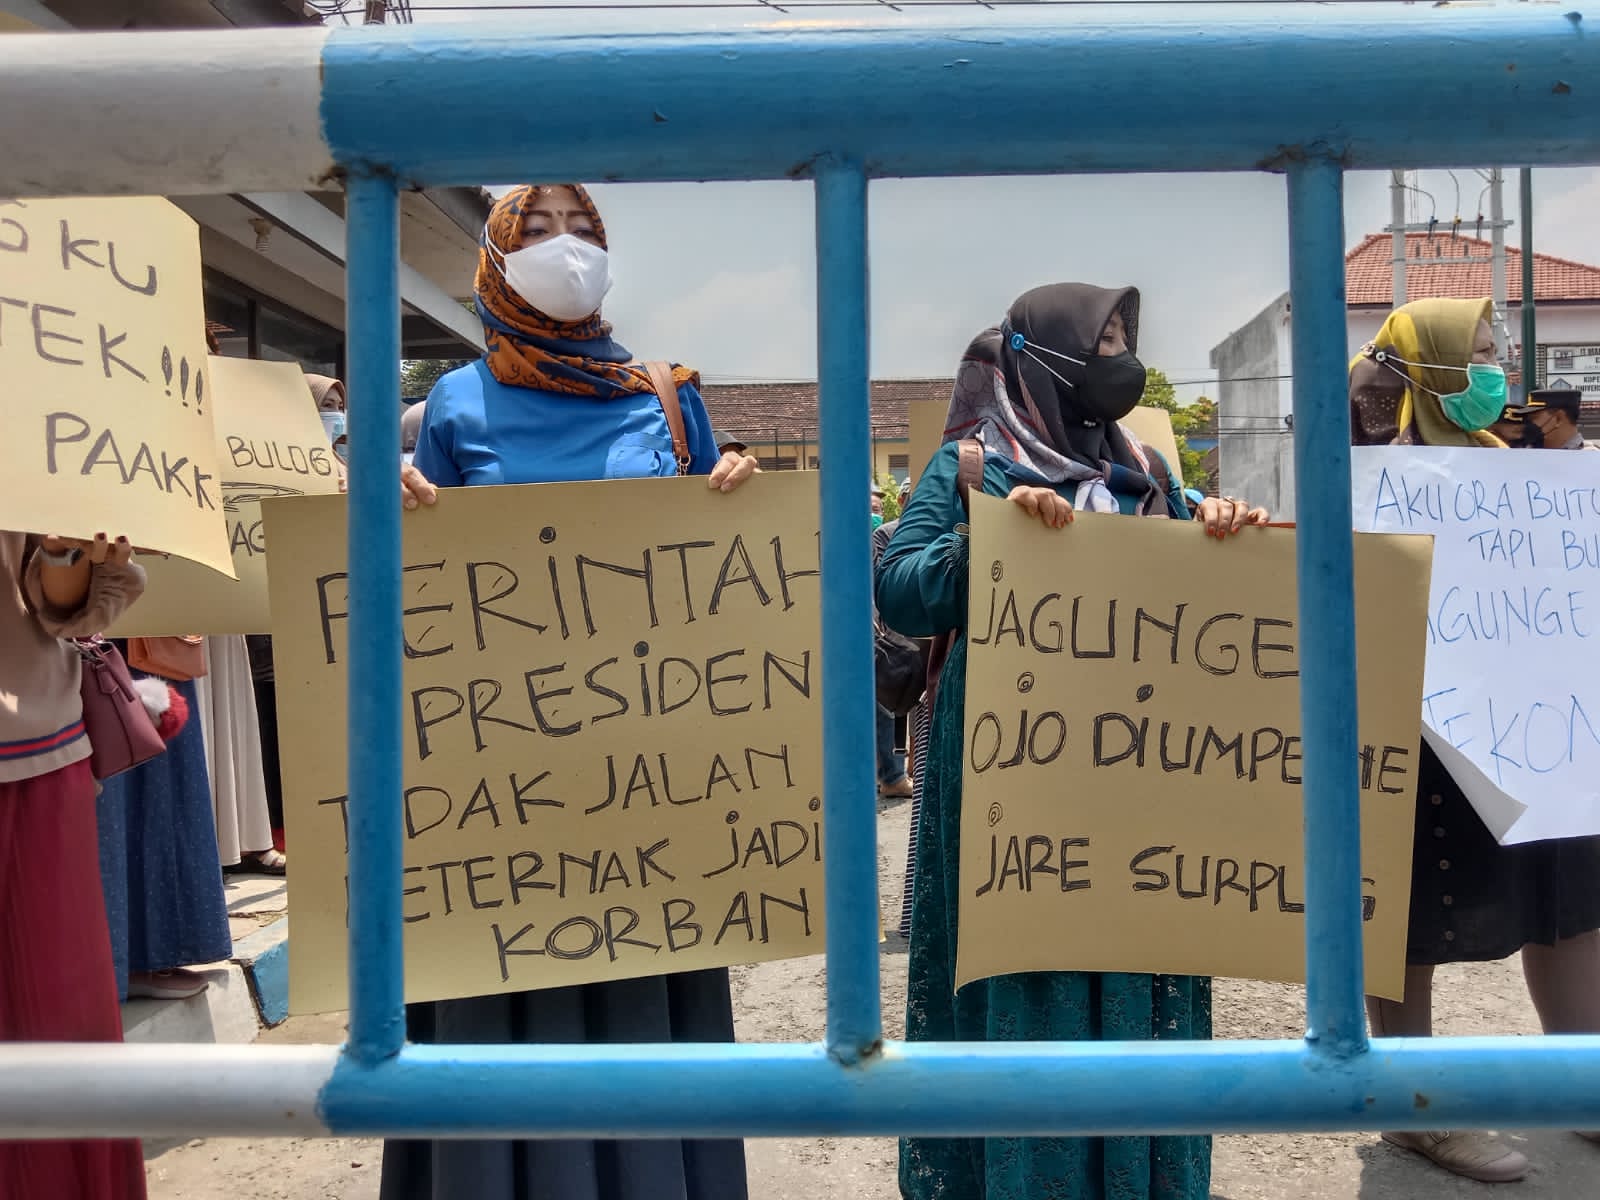 KU
TEK !!!
PAAKK
BULOG
PERINTAH
PRESIDEN
TIDAK JALAN
PETERNAK JADI
KORBAN
JAGUNGE
OJO DIUMPE HE
JARE SURPLUS
AKU ORA BUTU
TAPI BU
AGUNGE
TEKON